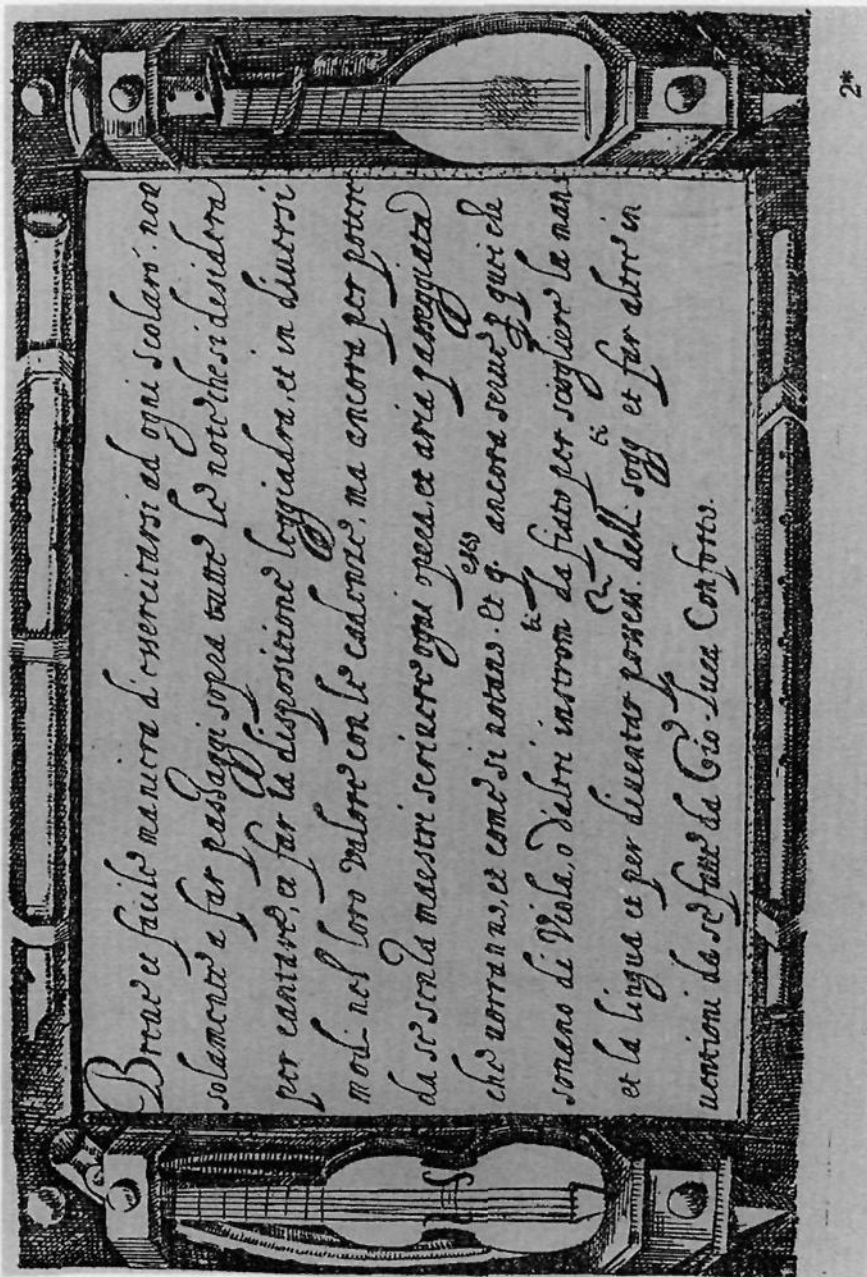 Breue et facile maniera d'essercitarsi ad ogni scolaro. non
solamente a far passaggi sopra tutte le note che si desidera
per cantare, et far la dispositione leggiadra, et in diuersi
modi nel loro valore con le cadenze, ma ancora per potere
da se senza maestri scriuere ogni opera, et aria passeggiata
che uorranno, et come si notano. Et q.esto ancora serue p quei che
sonano di Viola, o d'altri instrom.ti da fiato per sciogliere la mano
et la lingua et per diuentar possess.ri delli sogg.ti et far altre in
uentioni da se fatte da Gio. Luca Conforto.
2*